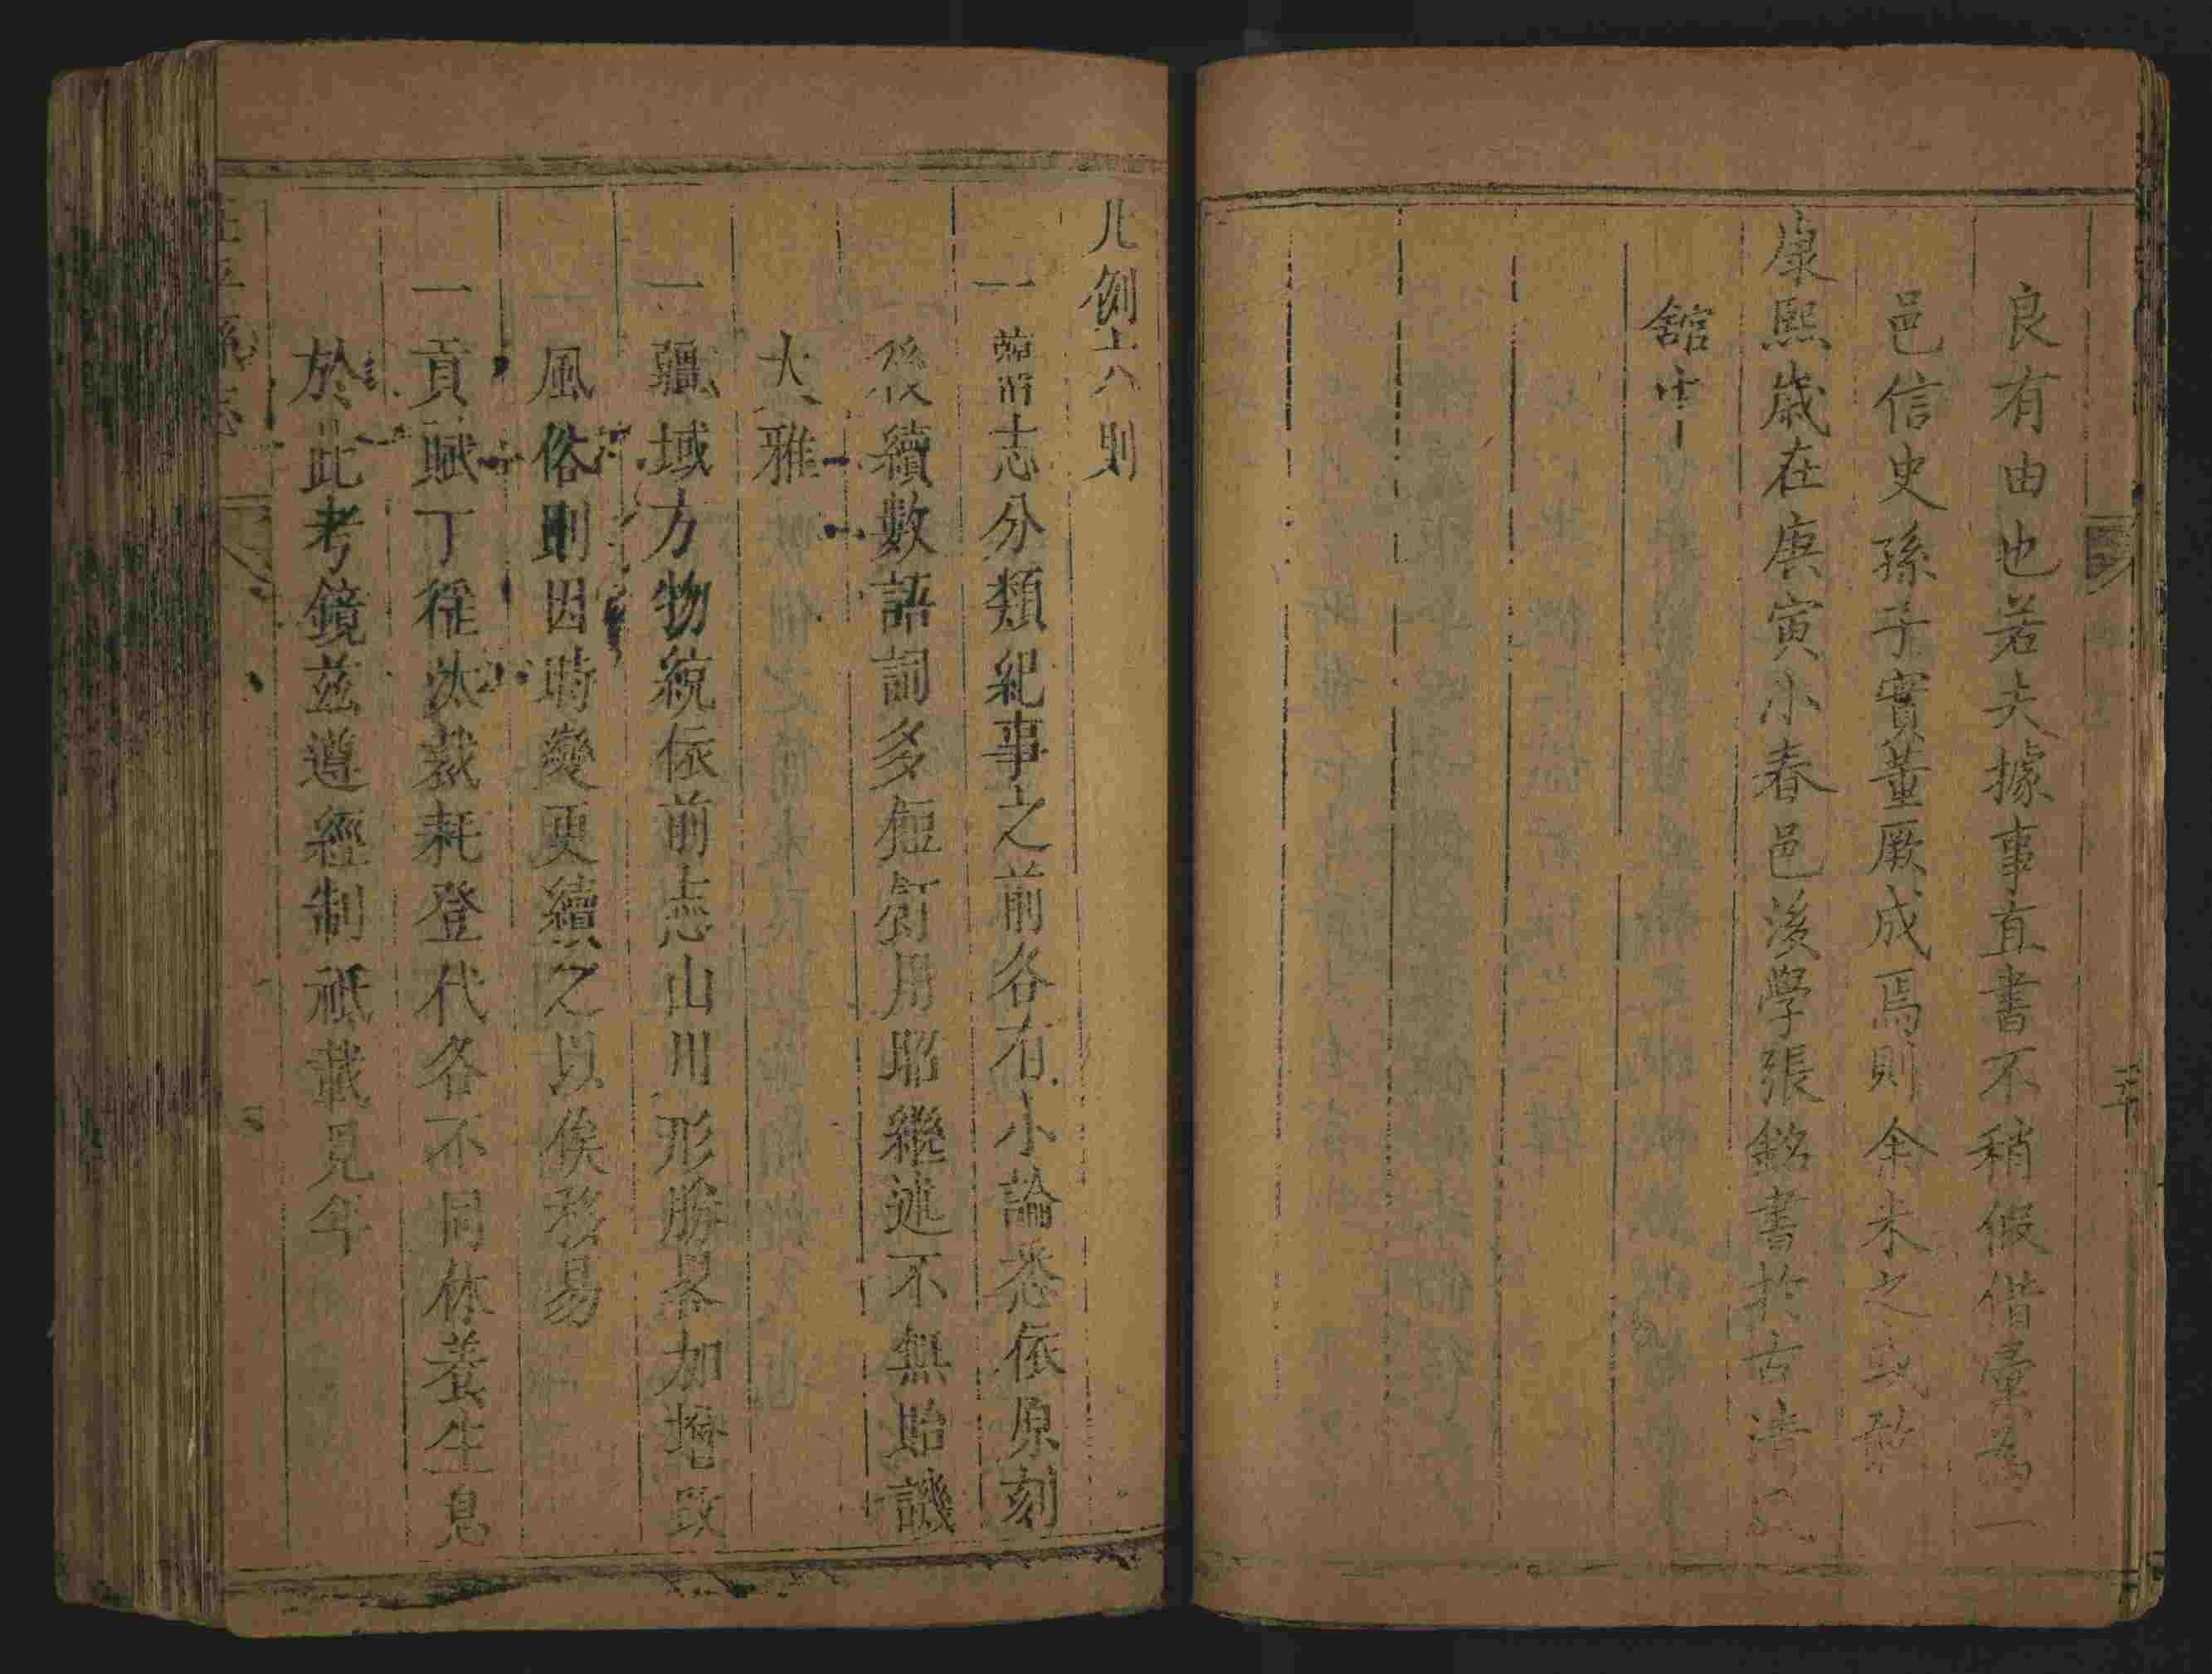 良有由也若夫據事直書不稍假借彙為一
邑信史孫子實董厥成焉則余未之或敢
康熙歲在庚寅小春邑後學張銘書於古
舘中
凡例十八則
一舊志分類紀事之前各有小論悉依原刻
後續數語詞多短釘用昭繼述不無貽譏
大雅
一疆域方物統依前志山川形勝畧加增改
風俗則因時變更續之以俟移易
一貢賦丁徭汰裁耗登代各不同休養生息
於此考鏡茲遵經制祇載見年